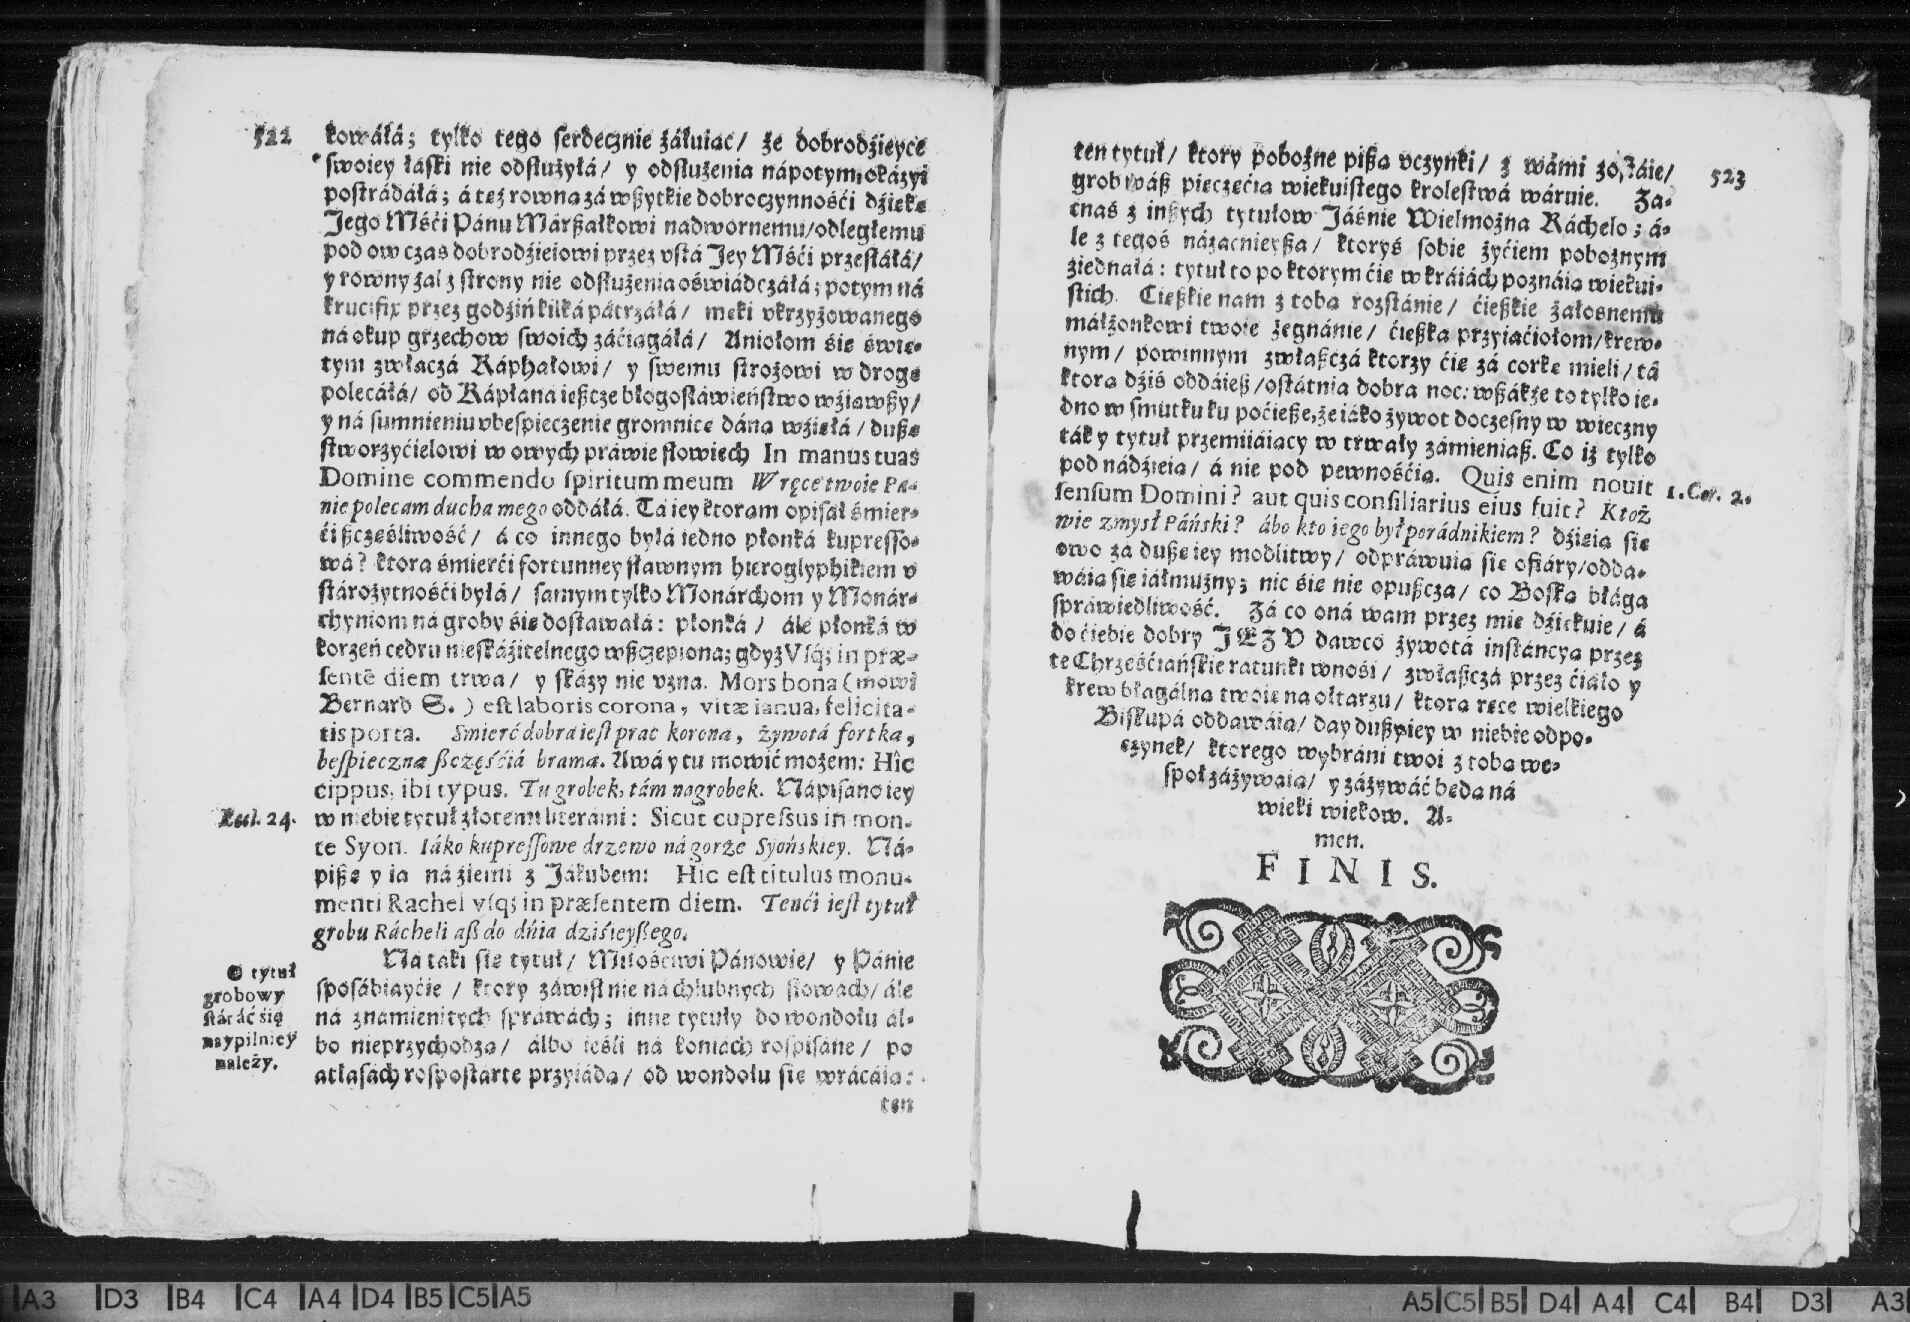 522
kowáłá; tylko tego serdecznie żáłuiąc/ że dobrodźieyce
swoiey łáski nie odsłużyłá/ y odsłużenia nápotym okázyi
postrádáłá; á też rowną zá wßytkie dobroczynnośći dźiękę
Jego Mśći Pánu Márßałkowi nadwornemu/ odległemu
pod ow czas dobrodźieiowi przez vstá Jey Mśći przesłáłá/
y rowny żal z strony nie odsłużenia oświádczáłá; potym ná
krucifix przez godźin kilká pátrzáłá/ męki vkrzyżowanego
ná okup grzechow swoich záćiągáłá/ Aniołom śię świę-
tym zwłaczá Ráphałowi/ y swemu strożowi w drogę
polecáłá/ od Kápłana ießcze błogosłáwieństwo wźiąwßy/
y ná sumnieniu vbespieczenie gromnicę dáną wźięłá/ dußę
stworzyćielowi w owych práwie słowiech In manus tuas
Domine commendo spiritum meum W ręce twoie Pa-
nie polecam ducha mego oddáłá. Tá iey ktoram opisał śmier-
ći ßczęśliwość/ á co innego byłá iedno płonká kupresso-
wá? ktora śmierći fortunney sławnym hieroglyphikiem v
stárożytnośći byłá/ samym tylko Monárchom y Monár-
chyniom ná groby śię dostawałá: płonká/ ále płonká w
korzeń cedru nieskáźitelnego wßczepiona; gdyż Vsq; in præ-
sentē diem trwa/ y skázy nie vzna. Mors bona (mowi
Bernard S.) est laboris corona, vitæ ianua, felicita-
tis porta. Smierć dobra iest prac korona, żywotá fortka,
bespieczna ßczęśćiá brama. Awá y tu mowić możem: Hîc
cippus, ibi typus. Tu grobek, tám nagrobek. Nápisano iey
Eccl. 24.
w niebie tytuł złotemi literámi: Sicut cupressus in mon-
te Syon. Iáko kupressowe drzewo ná gorze Syońskiey. Ná-
pißę y ia ná źiemi z Jákubem: Hic est titulus monu-
menti Rachel vsq; in præsentem diem. Tenći iest tytuł
grobu Rácheli aß do dńia dziśieyßego.
Ná táki się tytuł/ Miłośćiwi Pánowie/ y Pánie
O tytuł
grobowy
stáráć się
naypilniey
należy.
sposábiayćie/ ktory záwisł nie ná chlubnych słowách/ ále
ná znamienitych spráwách; inne tytuły do wondołu ál-
bo nieprzychodzą/ álbo ieśli ná koniách rospisáne/ po
atłasách rospostarte przyiádą/ od wondołu się wrácáią:
ten
523
ten tytuł/ ktory pobożne pißą vczynki/ z wámi zostáie/
grob wáß pieczęćią wiekuistego krolestwá wáruie. Za-
cnaś z inßych tytułow Jáśnie Wielmożna Ráchelo; á-
le z tegoś názacnieyßa/ ktoryś sobie żyćiem pobożnym
ziednáłá: tytuł to po ktorym ćię w kráiách poznáią wiekui-
stich. Cięßkie nam z tobą rozstánie/ ćięßkie żałosnemu
máłżonkowi twoie żegnánie/ ćięßka przyiaćiołom/ krew-
nym/ powinnym zwłaßczá ktorzy ćię zá corkę mieli/ tá
ktorą dźiś oddáieß/ ostátnia dobra noc: wßákże to tylko ie-
dno w smutku ku poćieße, że iáko żywot doczesny w wieczny
ták y tytuł przemiiáiący w trwáły zámieniaß. Co iż tylko
pod nádźieią/ á nie pod pewnośćią. Quis enim novit
1. Cor. 2.
sensum Domini? aut quis consiliarius eius fuit? Ktoż
wie zmysł Páński? ábo kto iego był porádnikiem? dźieią się
owo zá dußę iey modlitwy/ odpráwuią się ofiáry/ odda-
wáią się iáłmużny; nic śię nie opußcza/ co Boską błága
spráwiedliwość. Zá co oná wam przez mię dźiękuie/ á
do ćiebie dobry JEZU dawco żywotá instáncyą przez
te Chrześćiáńskie ratunki wnośi/ zwłaßczá przez ćiáło y
krew błagálną twoię na ołtarzu/ ktorą ręce wielkiego
Biskupá oddawáią/ day dußy iey w niebie odpo-
czynek/ ktorego wybráni twoi z tobą we-
społ záżywaią/ y záżywáć będą ná
wieki wiekow. A-
men.
FINIS.
A3 D3 B4 C4 A4 D4 B5 C5 A5
A5 C5 B5 D4 A4 C4 B4 D3 A3